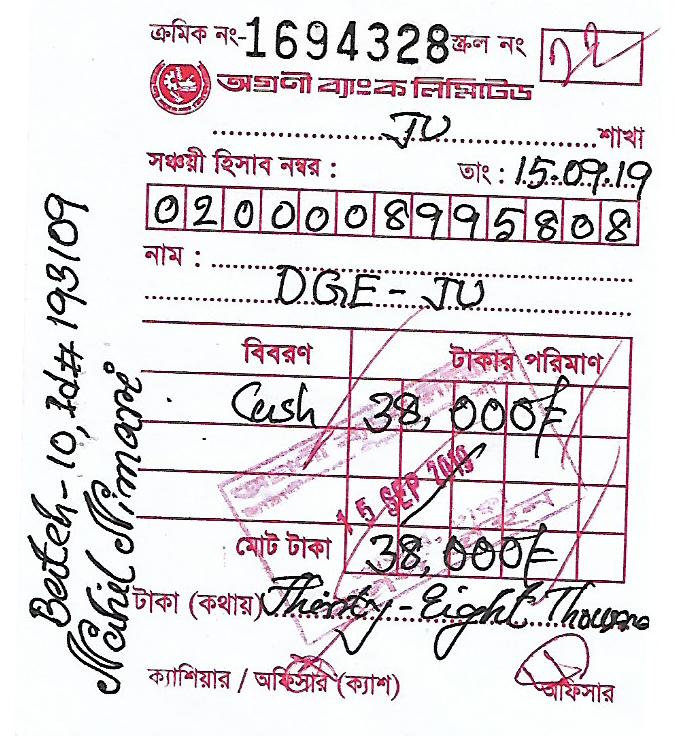 ক্রমিক নং-1694328 স্ক্রল নং
অগ্রণী ব্যাংক লিমিটেড
JU শাখা
সঞ্চয়ী হিসাব নম্বর : তাং : 15.09.19
0200008995808
নাম :
DGE - JU
বিবরণ টাকার পরিমাণ
Cash 38,000/=
15 SEP 2019
মোট টাকা 38,000/=
টাকা (কথায়) Thirty-Eight Thousand
ক্যাশিয়ার / অফিসার (ক্যাশ) অফিসার
Batch-10, Id# 193109